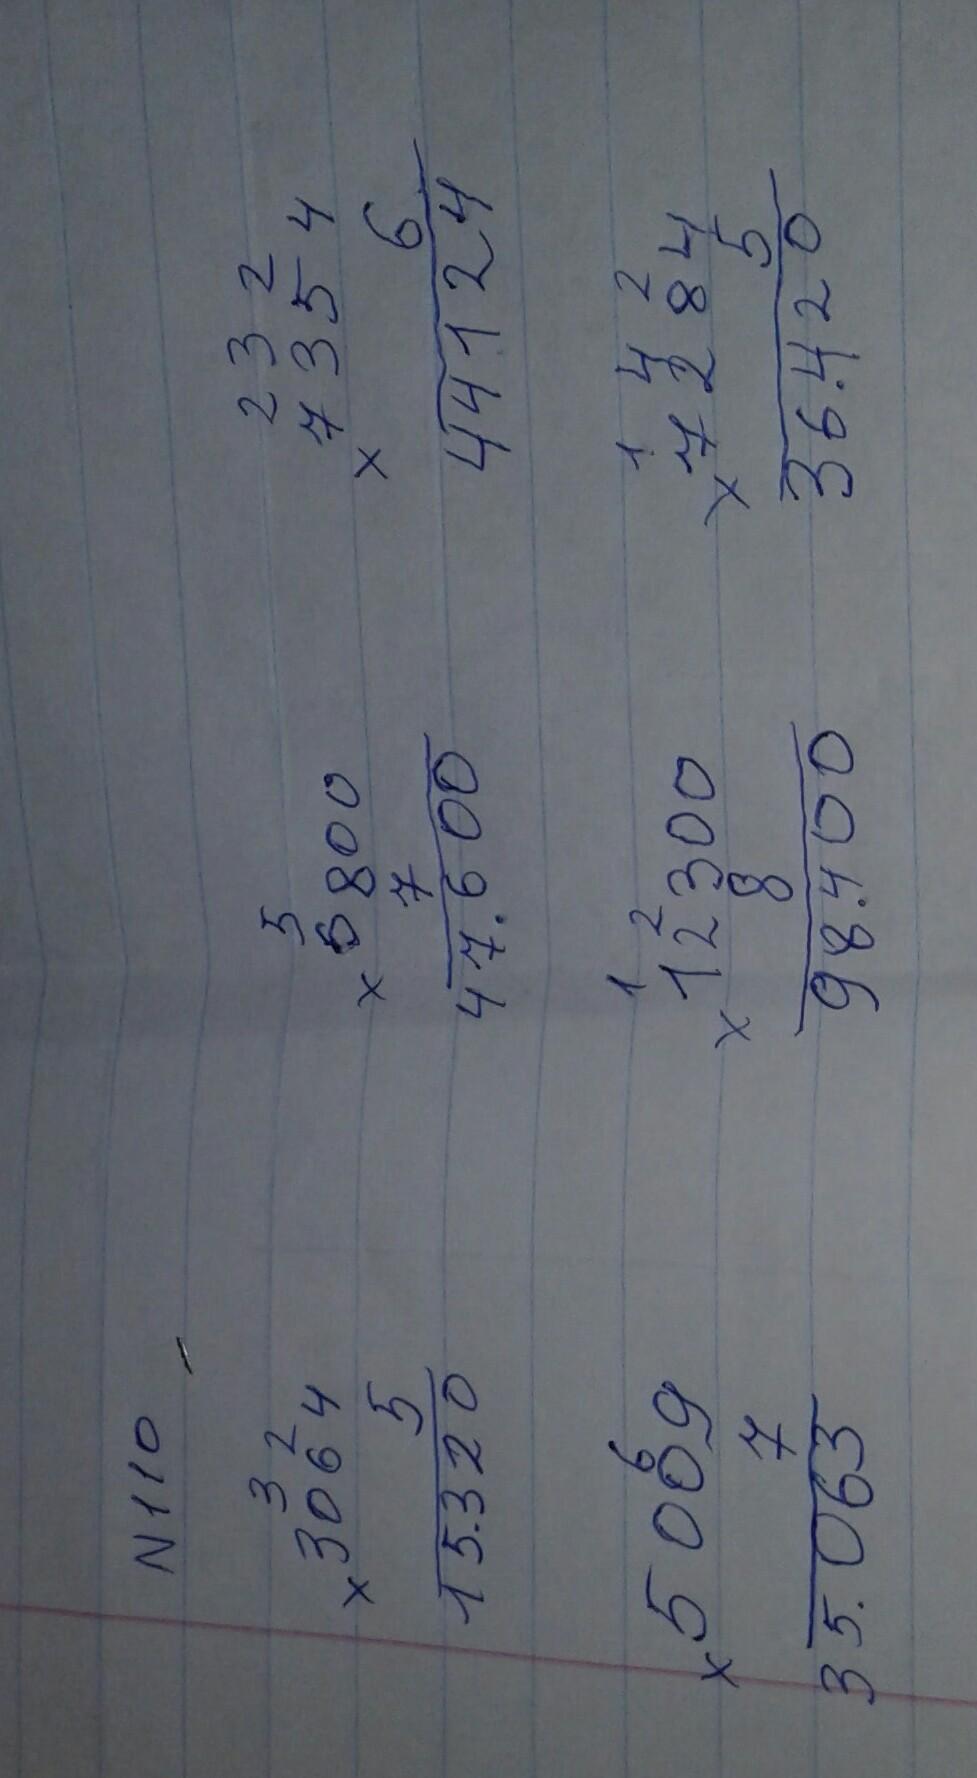 N110
3 2 5 2 3 2
x 3064 x 6800 x 7354
5 7 6
15.320 47.600 44124
6 1 2 1 4 2
x 5009 x 12300 x 7284
7 8 5
35.063 98.400 36.420